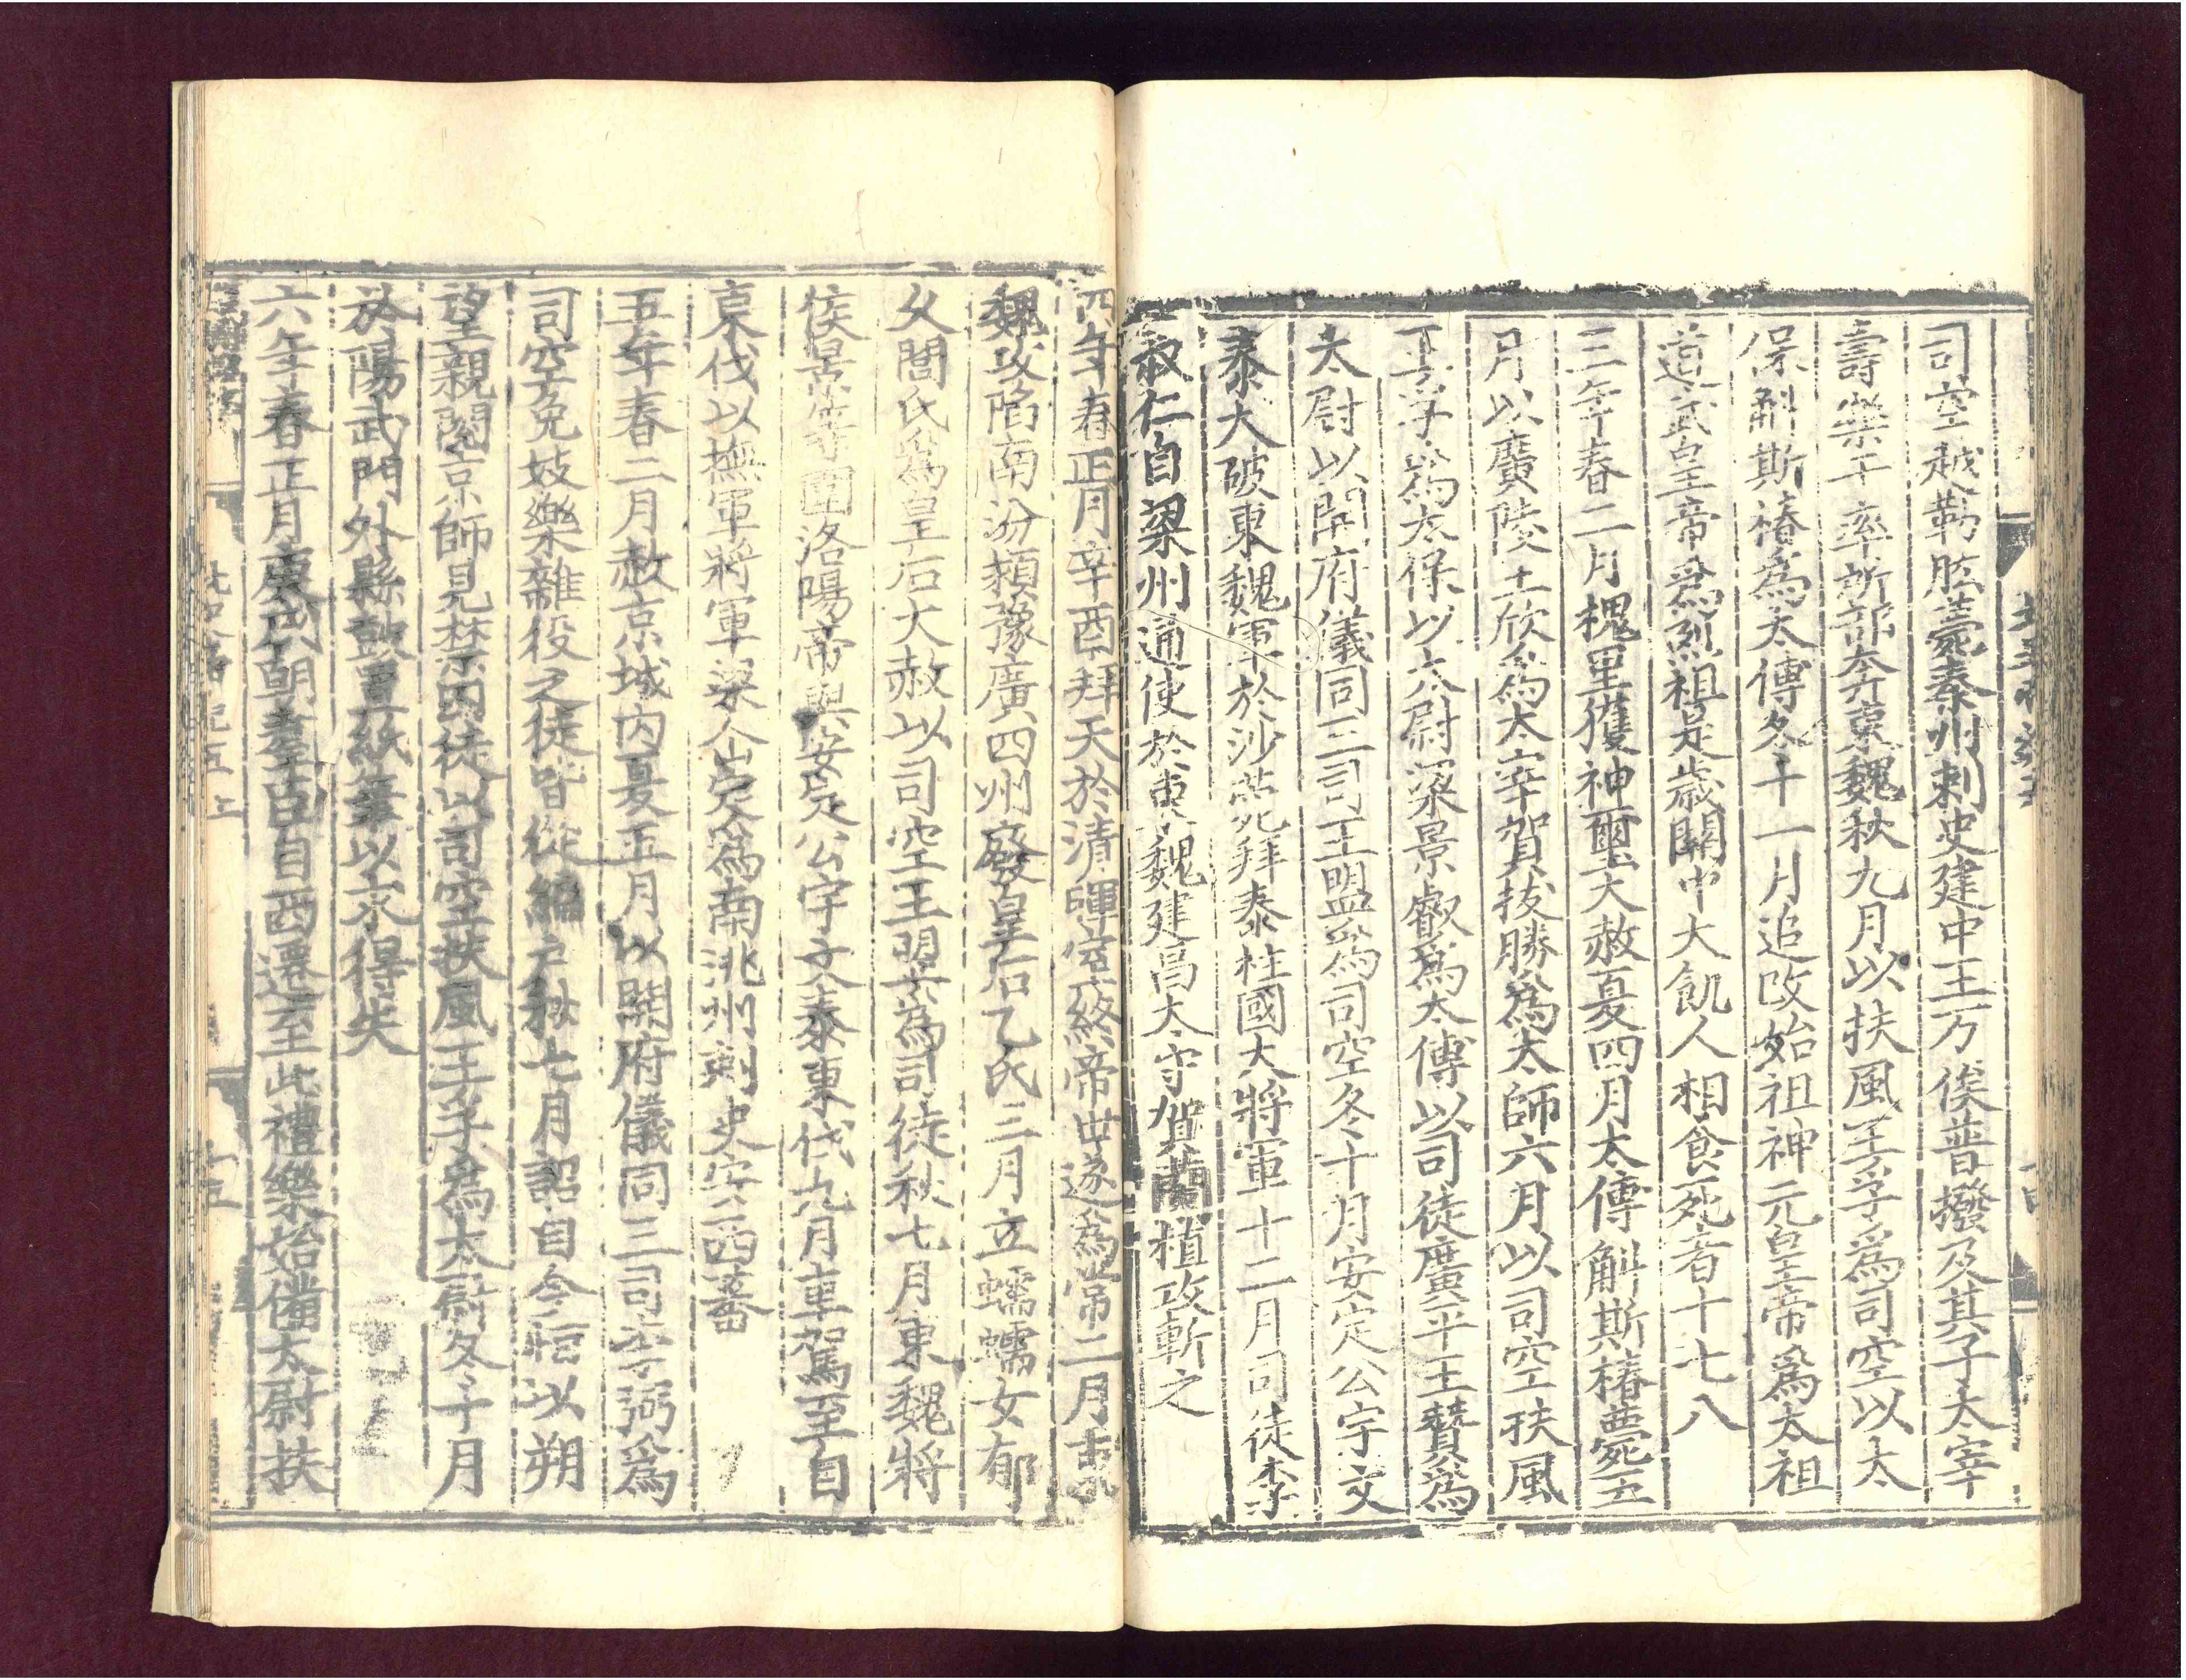 司空越勒肱薨秦州刺史建中王万俟普撥及其子太宰
壽樂干率所部奔東魏秋九月以扶風王孚爲司空以太
保斛斯椿爲太傅冬十一月追改始祖神元皇帝爲太祖
道武皇帝爲烈祖是歲關中大飢人相食死者十七八
三年春二月槐里獲神璽大赦夏四月太傅斛斯椿薨五
月以廣陵王欣爲太宰賀拔勝爲太師六月以司空扶風
王孚爲太保以太尉梁景叡爲太傅以司徒廣平王贊爲
太尉以開府儀同三司王盟爲司空冬十月安定公宇文
泰大破東魏軍於沙苑拜泰柱國大將軍十二月司徒李
叔仁自梁州通使於東魏建昌太守賀蘭植攻斬之
四年春正月辛酉拜天於清暉室終帝世遂爲常二月東
魏攻陷南汾潁豫廣四州廢皇后乙氏三月立蠕蠕女郁
久閭氏爲皇后大赦以司空王盟爲司徒秋七月東魏將
侯景等圍洛陽帝與安定公宇文泰東伐九月車駕至自
東伐以撫軍將軍梁仚定爲南洮州刺史安西蕃
五年春二月赦京城內夏五月以開府儀同三司李弼爲
司空免妓樂雜役之徒皆從編戶秋七月詔自今恒以朔
望親閱京師見禁囚徒以司空扶風王孚爲太尉冬十月
於陽武門外縣鼓置紙筆以求得失
六年春正月庚戌朝羣臣自西遷至此禮樂始備太尉扶
北史魏紀五上
十五